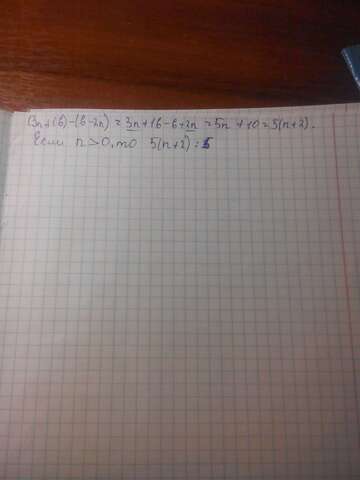 (3n+16)-(6-2n)=3n+16-6+2n=5n+10=5(n+2).
Если n>0, то 5(n+2):5